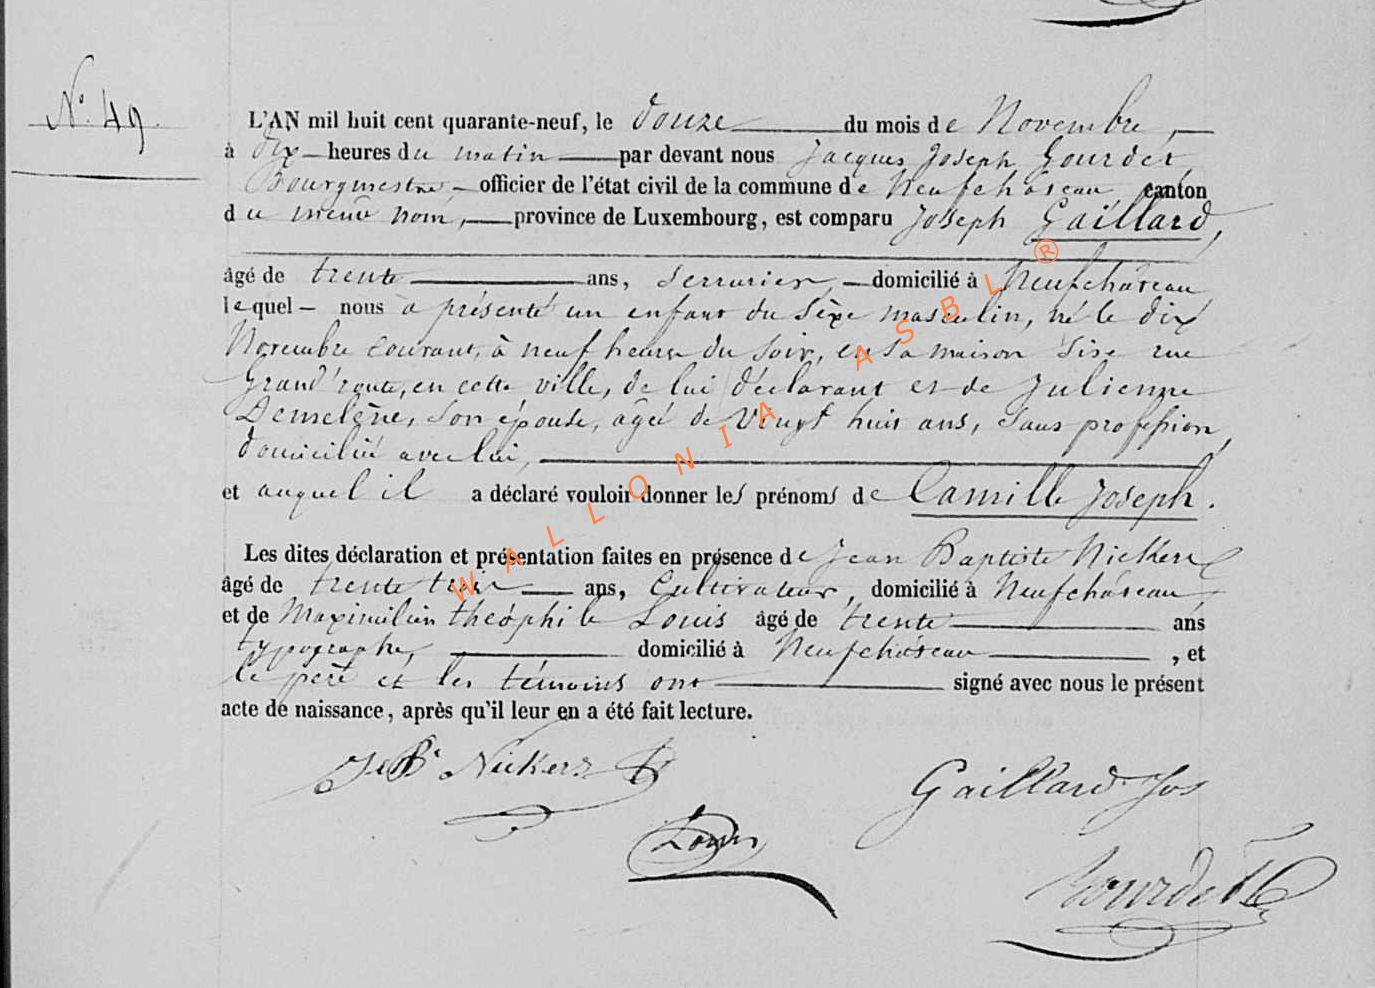 N° 49.
L'AN mil huit cent quarante-neuf, le douze du mois de Novembre,
à dix heures du matin par devant nous Jacques Joseph Gourdet
Bourgmestre officier de l'état civil de la commune de Neufchâteau canton
du même nom, province de Luxembourg, est comparu Joseph Gaillard,
âgé de trente ans, serrurier, domicilié à Neufchâteau
lequel nous a présenté un enfant du sèxe masculin, né le dix
Novembre courant, à neuf heures du soir, en sa maison sise rue
Grand'route, en cette ville, de lui déclarant et de Julienne
Demelène, son épouse, agée de vingt huit ans, sans profession,
domiciliée avec lui,
et auquel il a déclaré vouloir donner les prénoms de Camille Joseph.
Les dites déclaration et présentation faites en présence de Jean Baptiste Nickers
âgé de trente trois ans, Cultivateur, domicilié à Neufchâteau
et de Maximilien théophile Louis âgé de trente ans
typographe, domicilié à Neufchâteau, et
le père et les témoins ont signé avec nous le présent
acte de naissance, après qu'il leur en a été fait lecture.
J. Bte Nickers
Gaillard Jos
Louis
Gourdet
WALLONIA ASBL ®